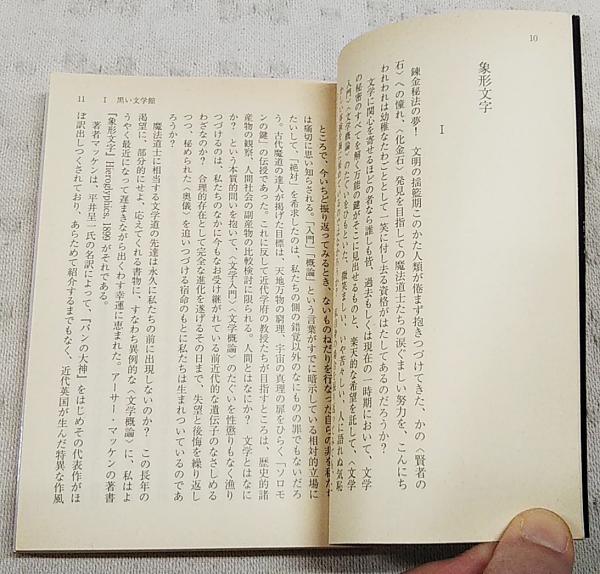 10
象形文字
I
錬金秘法の夢！ 文明の揺籃期このかた人類が倦まず抱きつづけてきた、かの〈賢者の
石〉への憧れ、〈化金石〉発見を目指しての魔法道士たちの涙ぐましい努力を、こんにち
われわれは幼稚なたわごととして一笑に付し去る資格がはたしてあるのだろうか？
文学に関心を寄せるほどの者なら誰しも皆、過去もしくは現在の一時期において、文学
の秘密のすべてを解く万能の鍵がそこに見出せるものと、楽天的な希望を託して、〈文学
入門〉〈文学概論〉のたぐいをひもといた、微笑ましい、いや苦々しい、人に語れぬ気恥
11 I 黒い文学館
ところで、今いちど振り返ってみるとき、ないものねだりを行なった自らの非を私たち
は痛切に思い知らされる。「入門」「概論」という言葉がすでに暗示している相対的立場に
たいして、「絶対」を希求したのは、私たちの側の錯覚以外のなにものの罪でもないだろ
う。古代魔道の達人が掲げた目標は、天地万物の窮理、宇宙の真理の扉をひらく「ソロモ
ンの鍵」の伝授であった。これに反して近代学府の教授たちが目指すところは、歴史的諸
産物の観察、人間社会の副産物の比較検討に限られる。人間とはなにか？ 文学とはなに
か？ という本質的問いを抱いて、〈文学入門〉〈文学概論〉のたぐいを性懲りもなく漁り
つづけるのは、私たちのなかに今もなお受け継がれている前近代的な遺伝子のなさしめる
わざなのか？ 合理的存在として完全な進化を遂げるその日まで、失望と後悔を繰り返し
つつ、秘められた〈奥儀〉を追いつづける宿命のもとに私たちは生まれついているのであ
ろうか？
魔道士に相当する文学道の先達は永久に私たちの前に出現しないのか？ この長年の
渇望に、部分的にせよ、応えてくれる書物に、すなわち異例的な〈文学概論〉に、私はよ
うやく最近になって遅まきながら出くわす幸運に恵まれた。アーサー・マッケンの著書
『象形文字』Hieroglyphics, 1899 がそれである。
著者マッケンは、平井呈一氏の名訳によって、『パンの大神』をはじめその代表作がほ
ぼ訳出しつくされており、あらためて紹介するまでもなく、近代英国が生んだ特異な作風